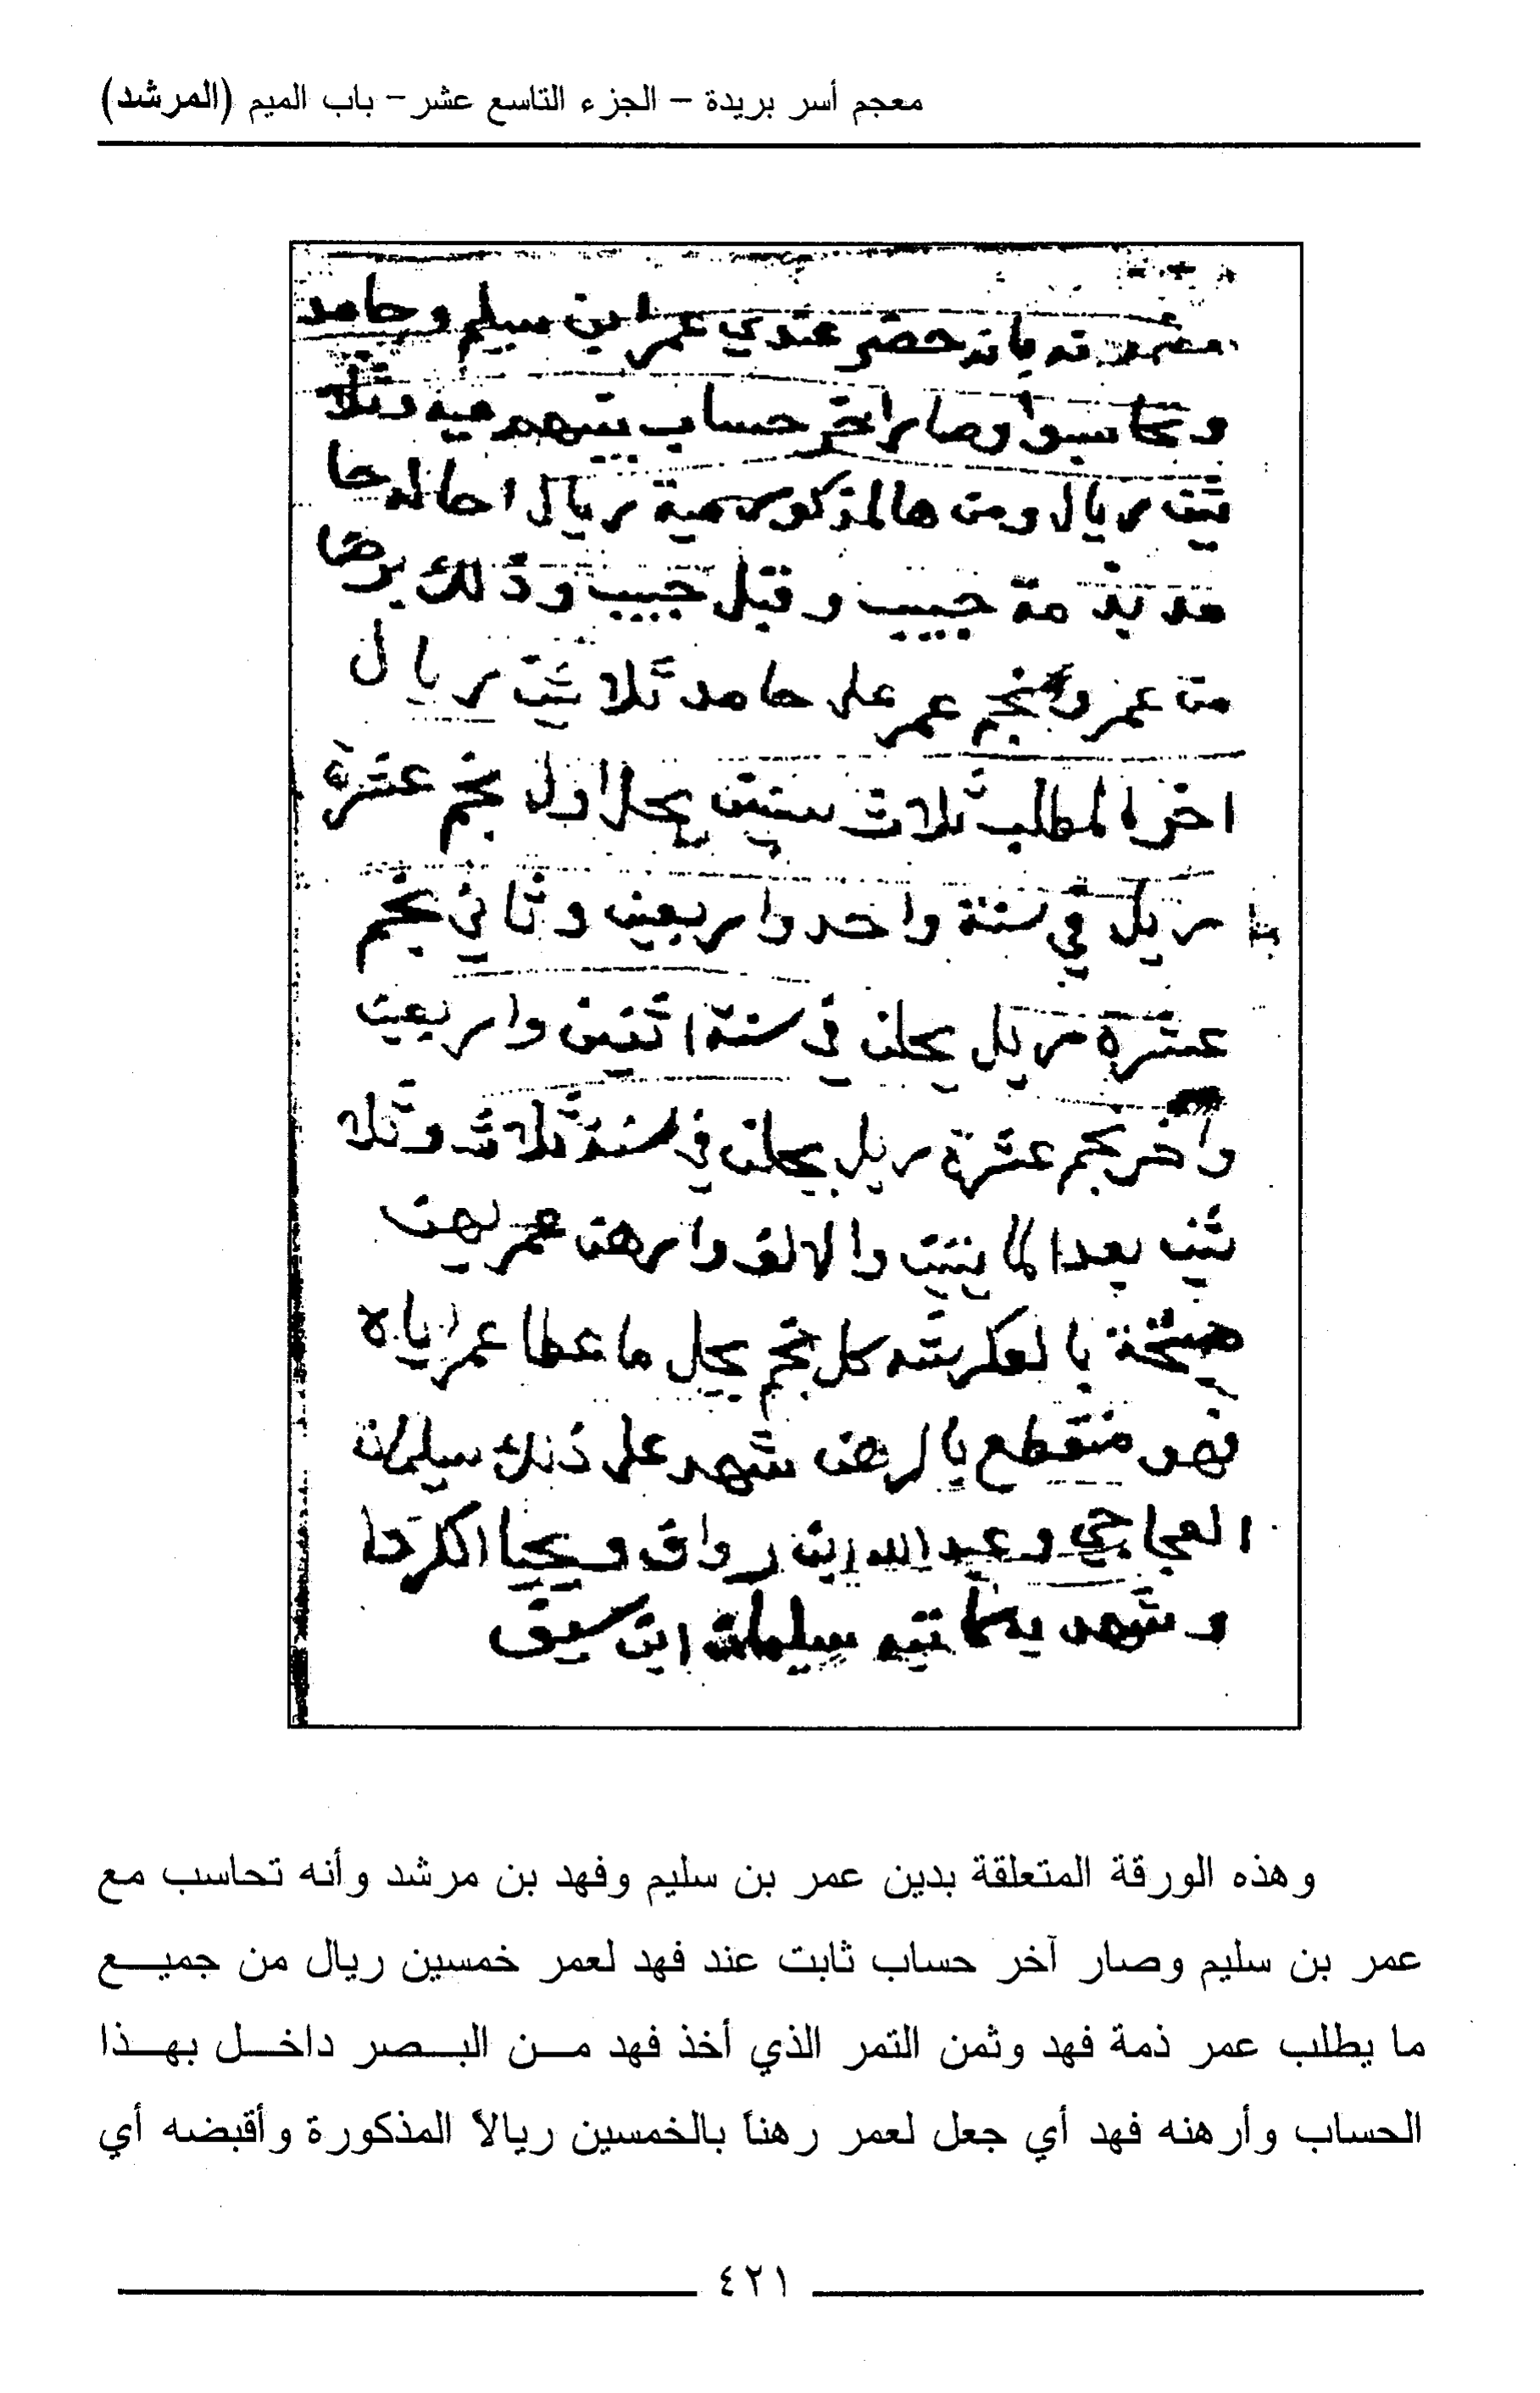 معجم أسر بريدة – الجزء التاسع عشر – باب الميم (المرشد)
بانه حضر عندي عمر ابن سيلم وحامد
وتحاسبوا وصار اخر حساب بينهم ميه وثلا
ثين ريال ومن هالمذكور مية ريال احاله حا
مد بذمة حبيب وقبل حبيب وذلك برضا
من عمر ونجم عمر على حامد ثلاثين ريال
اخر المطلب ثلاث سنين يحل اول نجم عشرة
ريل في سنة واحد واربعين وثاني نجم
عشرة ريل يحلن في سنة اثنين واربعين
واخر نجم عشرة ريل يحلن في سنة ثلاث وثلا
ثين بعد المايتين والالف وارهن عمر بهن
بالعكرشه كل نجم يحل ما عطا عمر اياه
فهو منقطع بالرهن شهد على ذلك سليمان
العجاجي وعبد الله ابن رواف ويحيا الكردا
وشهد به كاتبه سليمان ابن سيف
وهذه الورقة المتعلقة بدين عمر بن سليم وفهد بن مرشد وأنه تحاسب مع
عمر بن سليم وصار آخر حساب ثابت عند فهد لعمر خمسين ريال من جميع
ما يطلب عمر ذمة فهد وثمن التمر الذي أخذ فهد من البصر داخل بهذا
الحساب وأرهنه فهد أي جعل لعمر رهناً بالخمسين ريالاً المذكورة وأقبضه أي
٤٢١